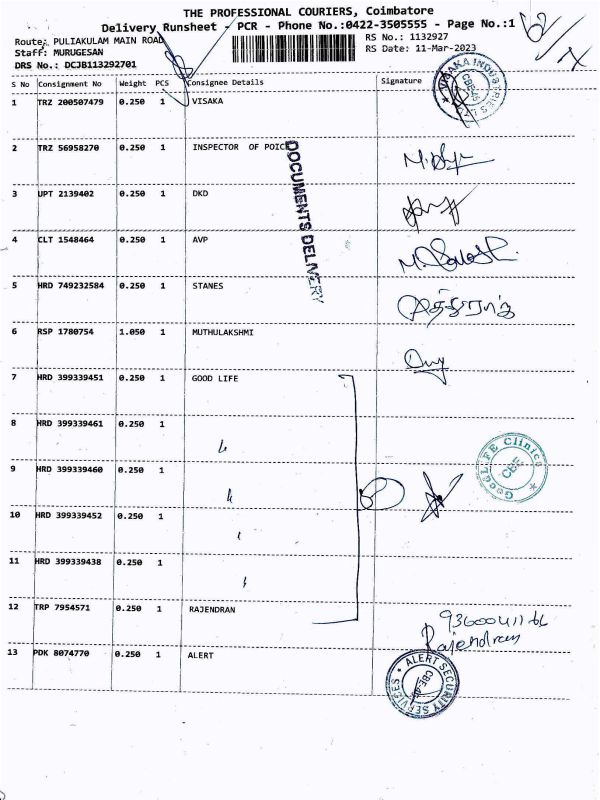 THE PROFESSIONAL COURIERS, Coimbatore
Delivery Runsheet - PCR - Phone No.:0422-3505555 - Page No.:1
Route: PULIAKULAM MAIN ROAD RS No.: 1132927
Staff: MURUGESAN RS Date: 11-Mar-2023
DRS No.: DCJB113292701
S No Consignment No Weight PCS Consignee Details Signature
1 TRZ 200507479 0.250 1 VISAKA
VISAKA INDUSTRIES LTD CBE-45
2 TRZ 56958270 0.250 1 INSPECTOR OF POICE
DOCUMENTS DELIVERY
3 UPT 2139402 0.250 1 DKD
4 CLT 1548464 0.250 1 AVP
5 HRD 749232584 0.250 1 STANES
6 RSP 1780754 1.050 1 MUTHULAKSHMI
7 HRD 399339451 0.250 1 GOOD LIFE
8 HRD 399339461 0.250 1
9 HRD 399339460 0.250 1
GoodLIFE Clinics CBE
10 HRD 399339452 0.250 1
11 HRD 399339438 0.250 1
12 TRP 7954571 0.250 1 RAJENDRAN
Rajendran
13 PDK 8074770 0.250 1 ALERT
ALERT SECURITY SERVICES CBE-45